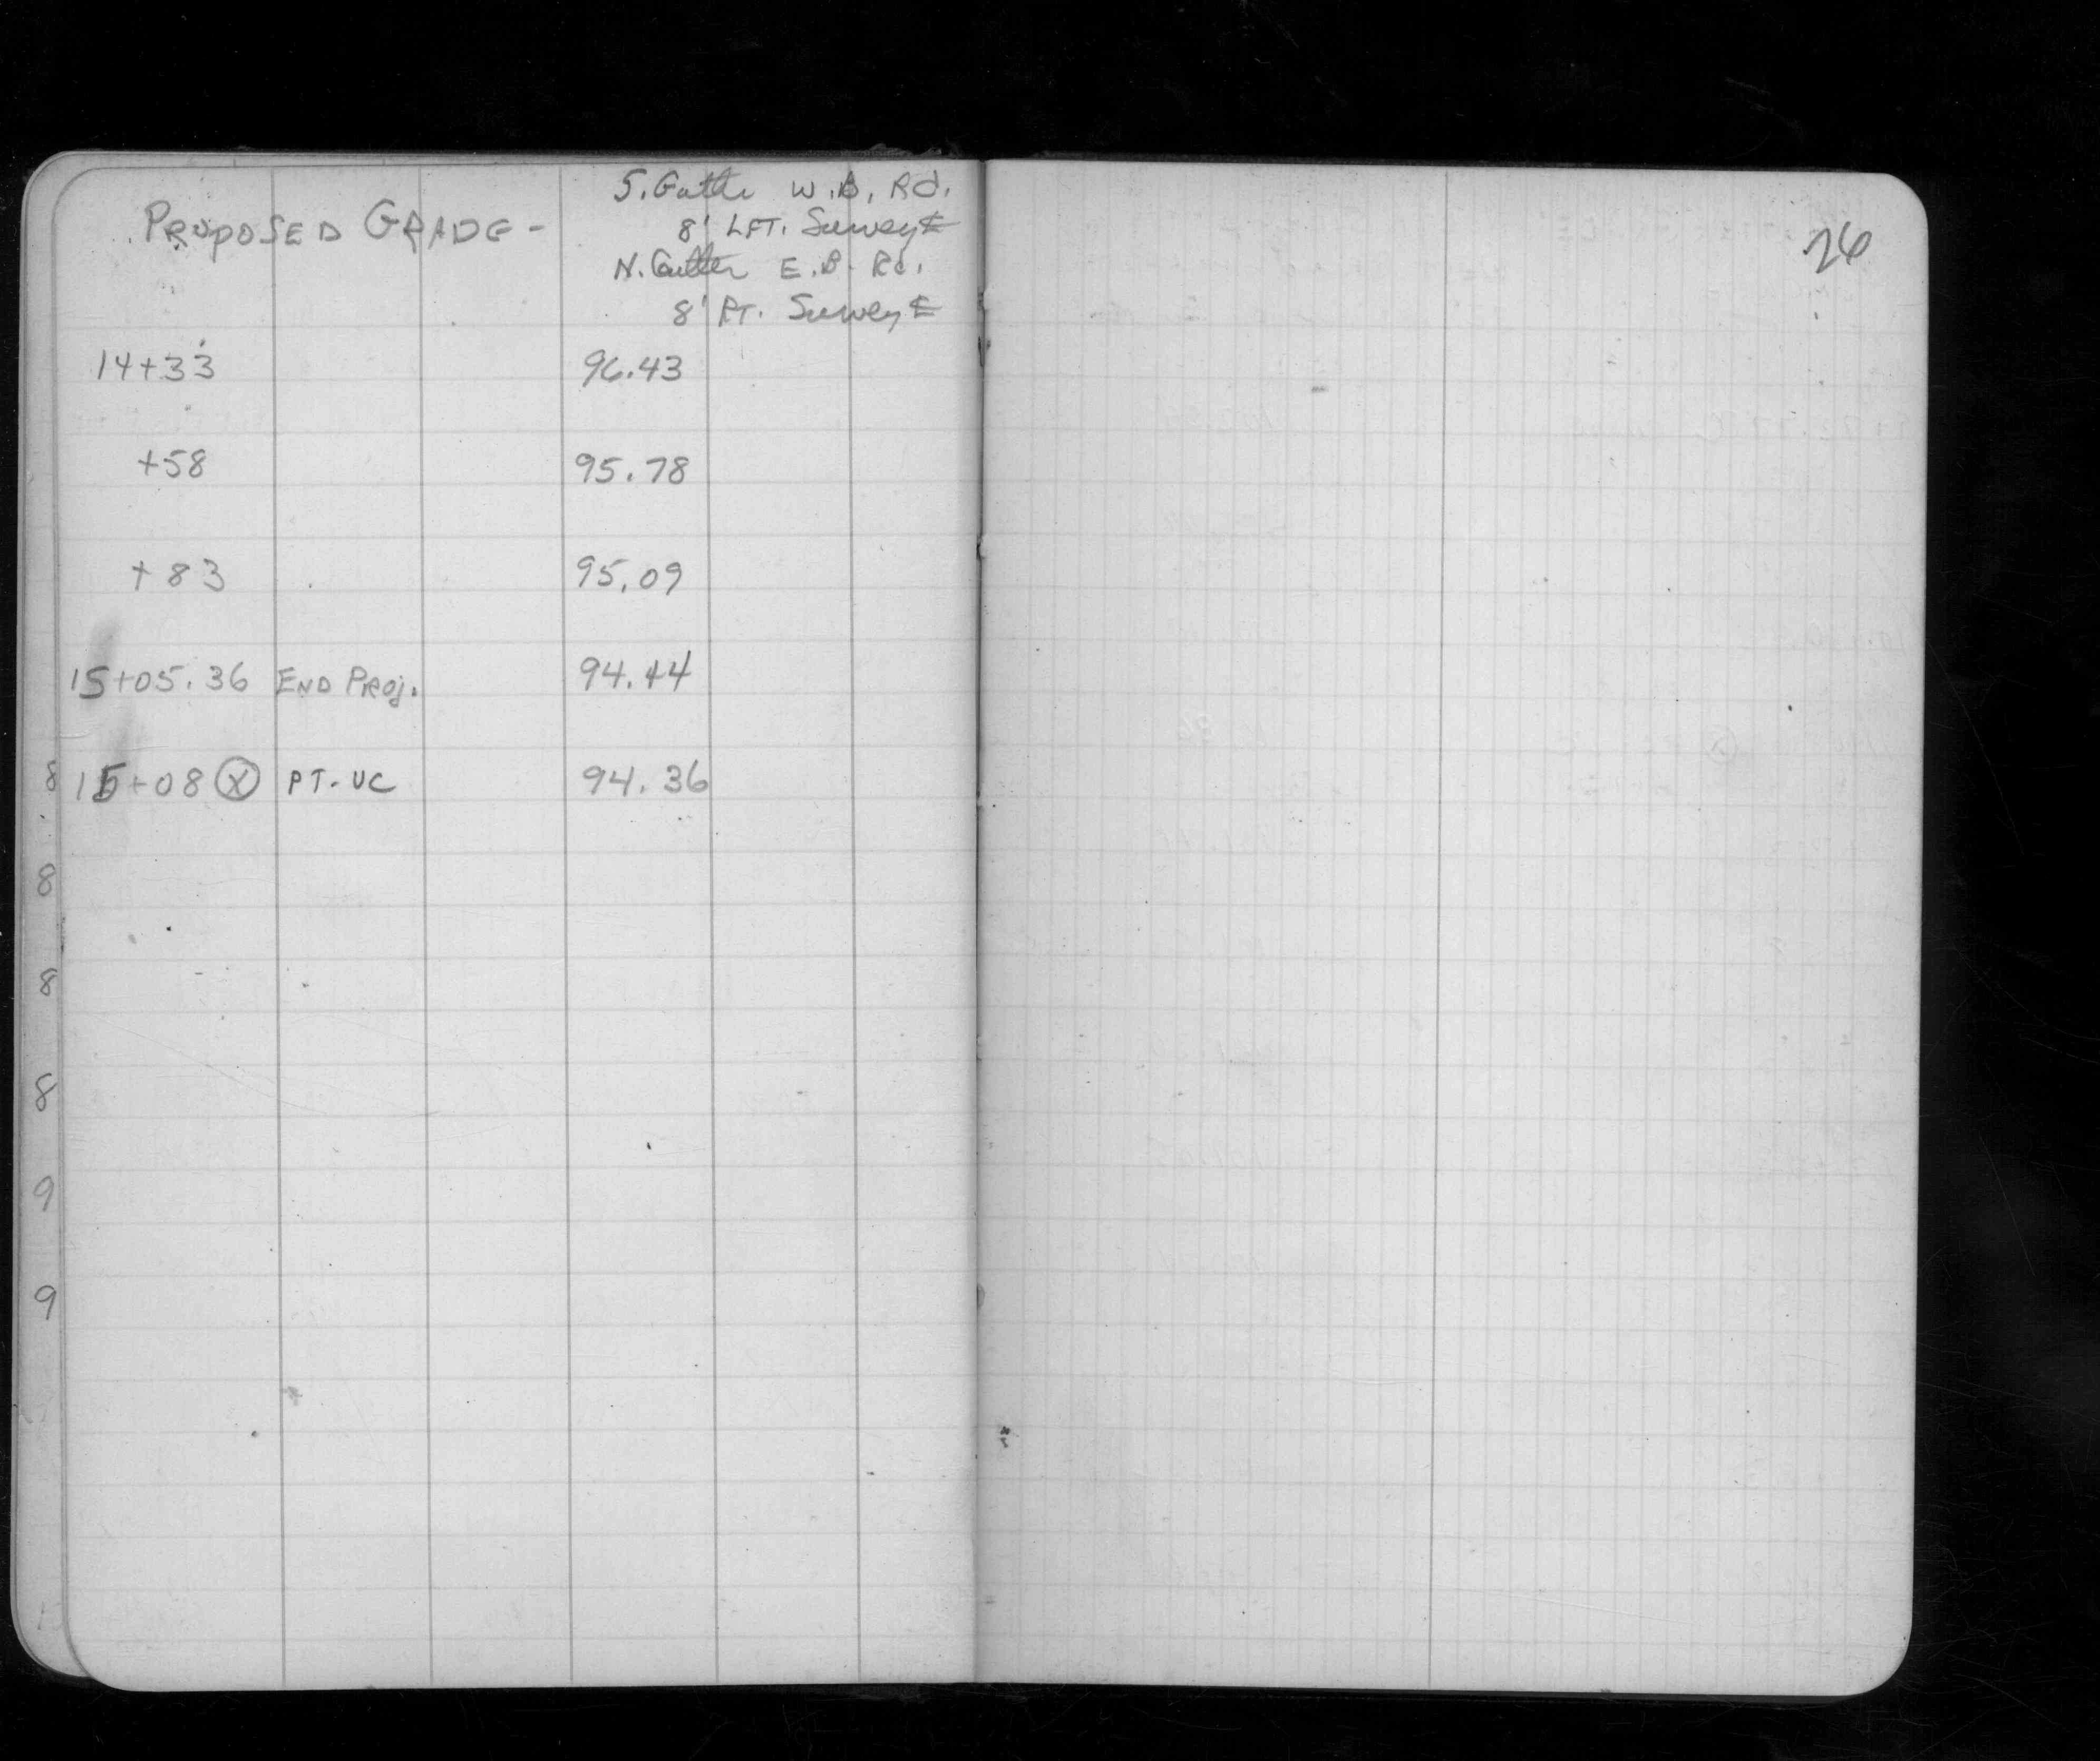 S. Gutter W.B. Rd.
PROPOSED GRADE -
8' LFT. Survey ℄
N. Gutter E.B. Rd.
8' RT. Survey ℄
26
14+33 96.43
+58 95.78
+83 95.09
15+05.36 END PROJ. 94.44
15+08 Ⓧ PT-VC 94.36
8
8
8
8
9
9